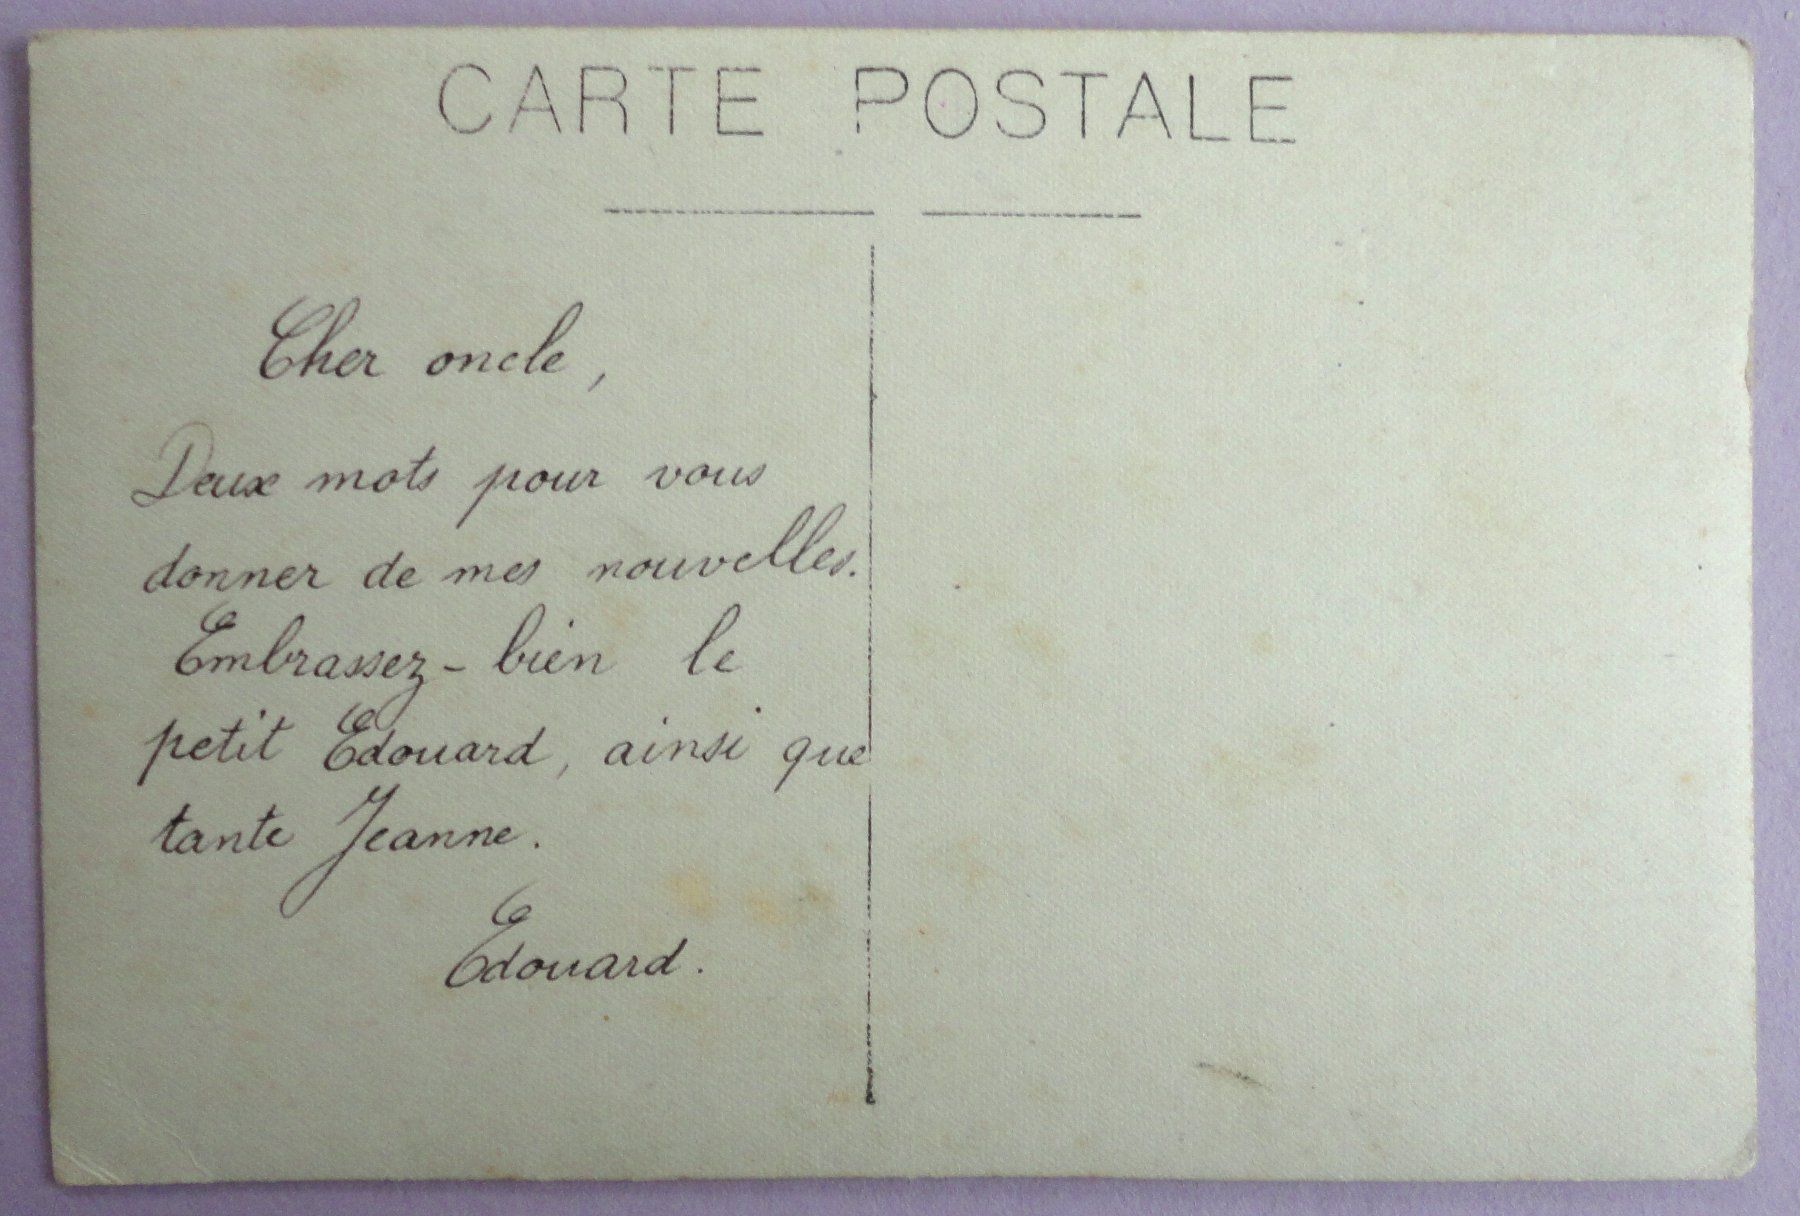 CARTE POSTALE
Cher oncle,
Deux mots pour vous
donner de mes nouvelles.
Embrassez-bien le
petit Edouard, ainsi que
tante Jeanne.
Edouard.